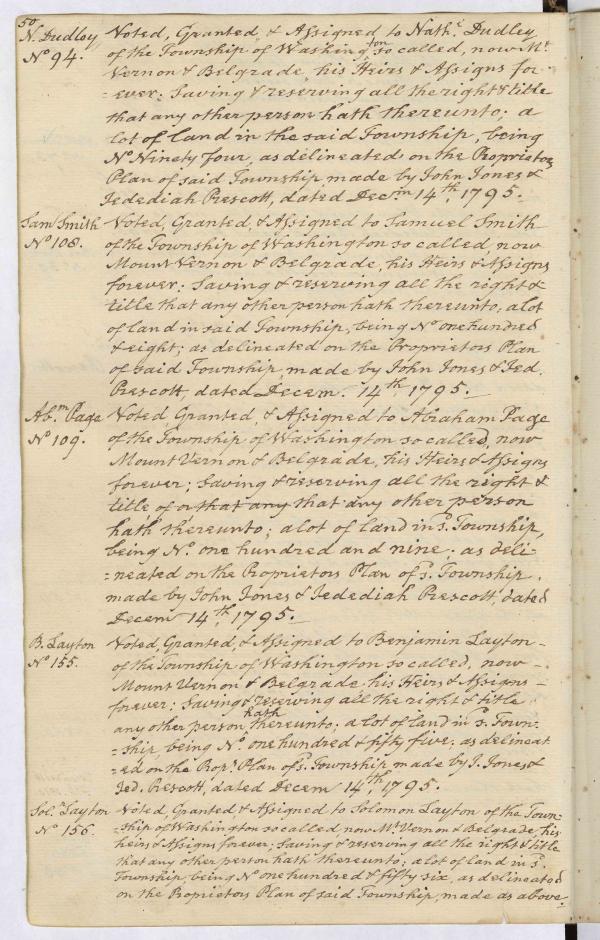 50
N. Dudley
No 94.
Voted, Granted, & Assigned to Nathl. Dudley
of the Township of Washington so called, now Mt.
Vernon & Belgrade, his Heirs & Assigns for-
=ever: Saving & reserving all the right & title
that any other person hath thereunto; a
lot of land in the said Township, being
No. Ninety four, as delineated on the Proprietors
Plan of said Township made by John Jones &
Jedediah Prescott, dated Decem 14th. 1795.
Sam Smith
No 108.
Voted, Granted, & Assigned to Samuel Smith
of the Township of Washington so called, now
Mount Vernon & Belgrade, his Heirs & Assigns
forever: Saving & reserving all the right &
title that any other person hath thereunto, a lot
of land in said Township, being No. one hundred
& eight; as delineated on the Proprietors Plan
of said Township, made by John Jones & Jed.
Prescott, dated Decem. 14th 1795.
Abm. Page
No 109.
Voted, Granted, & Assigned to Abraham Page
of the Township of Washington so called, now
Mount Vernon & Belgrade, his Heirs & Assigns
forever; Saving & reserving all the right &
title, of or that any that any other person
hath thereunto; a lot of land in sd. Township,
being No. one hundred and nine: as deli-
=neated on the Proprietors Plan of sd. Township.
made by John Jones & Jedediah Prescott, dated
Decem 14th. 1795.
B. Layton
No 155.
Voted, Granted, & Assigned to Benjamin Layton-
of the Township of Washington so called, now -
Mount Vernon & Belgrade, his Heirs & Assigns -
forever: Saving & reserving all the right & title
any other person hath thereunto, a lot of land in sd. Town-
=ship, being No. one hundred & fifty five; as delineat
=ed on the Propr. Plan of sd. Township made by J. Jones &
Jed. Prescott, dated Decem 14th, 1795.
Soln. Layton
No 156.
Voted, Granted, & Assigned to Solomon Layton of the Town-
=ship of Washington so called, now Mt Vernon & Belgrade, his
heirs & Assigns forever; Saving & reserving all the right & title
that any other person hath thereunto; a lot of land in sd.
Township, being No one hundred & fifty six, as delineated
on the Proprietors Plan of said Township, made as above